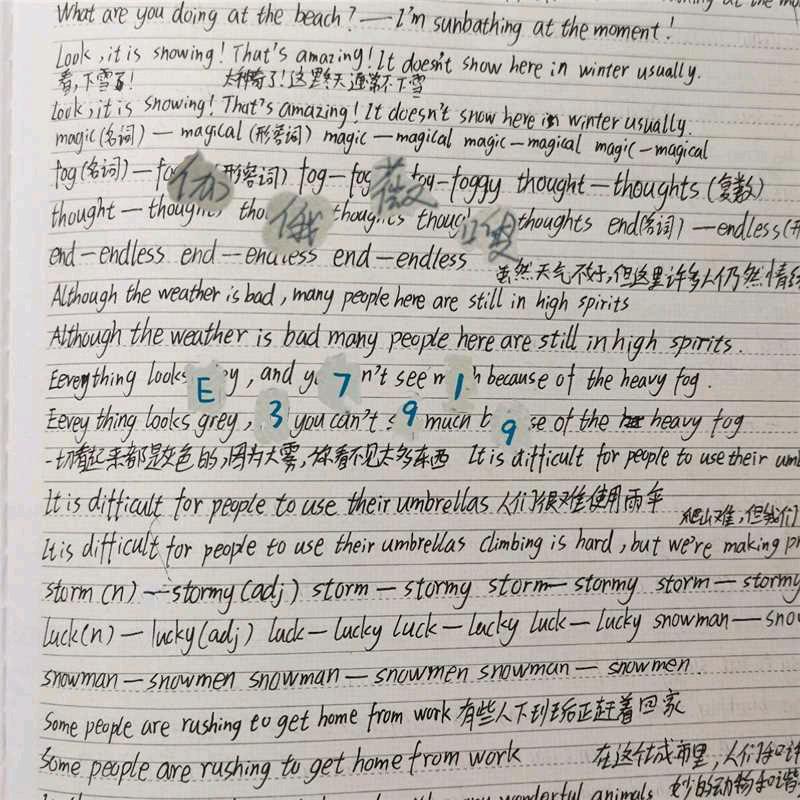 What are you doing at the beach? — I'm sunbathing at the moment!
Look, it is snowing! That's amazing! It doesn't snow here in winter usually.
看,下雪了! 太神奇了!这里冬天通常不下雪
Look, it is snowing! That's amazing! It doesn't snow here in winter usually.
magic(名词) — magical (形容词) magic — magical magic — magical magic — magical
fog(名词) — (形容词) fog — fog — foggy thought — thoughts (复数)
thought — thoughts thoughts thoughts end(名词) — endless
薇
俄
end — endless end — endless end — endless
虽然天气不好,但这里许多人仍然情绪
Although the weather is bad, many people here are still in high spirits
Although the weather is bad many people here are still in high spirits.
Eevery thing looks y, and n't see because of the heavy fog.
E 7 1
Eevery thing looks grey, you can't much se of the heavy fog
3 9 9
一切看起来都是灰色的,因为大雾,你看不见太多东西 It is difficult for people to use their
It is difficult for people to use their umbrellas 人们很难使用雨伞
爬山难,但我们
It is difficult for people to use their umbrellas climbing is hard, but we're making
storm (n) — stormy (adj) storm — stormy storm — stormy storm — stormy
luck(n) — lucky(adj) luck — lucky luck — lucky luck — lucky snowman —
snowman — snowmen snowman — snowmen snowman — snowmen.
Some people are rushing to get home from work 有些人下班后正赶着回家
Some people are rushing to get home from work 在这个城市里,人们和
wonderful animals 妙的动物和谐